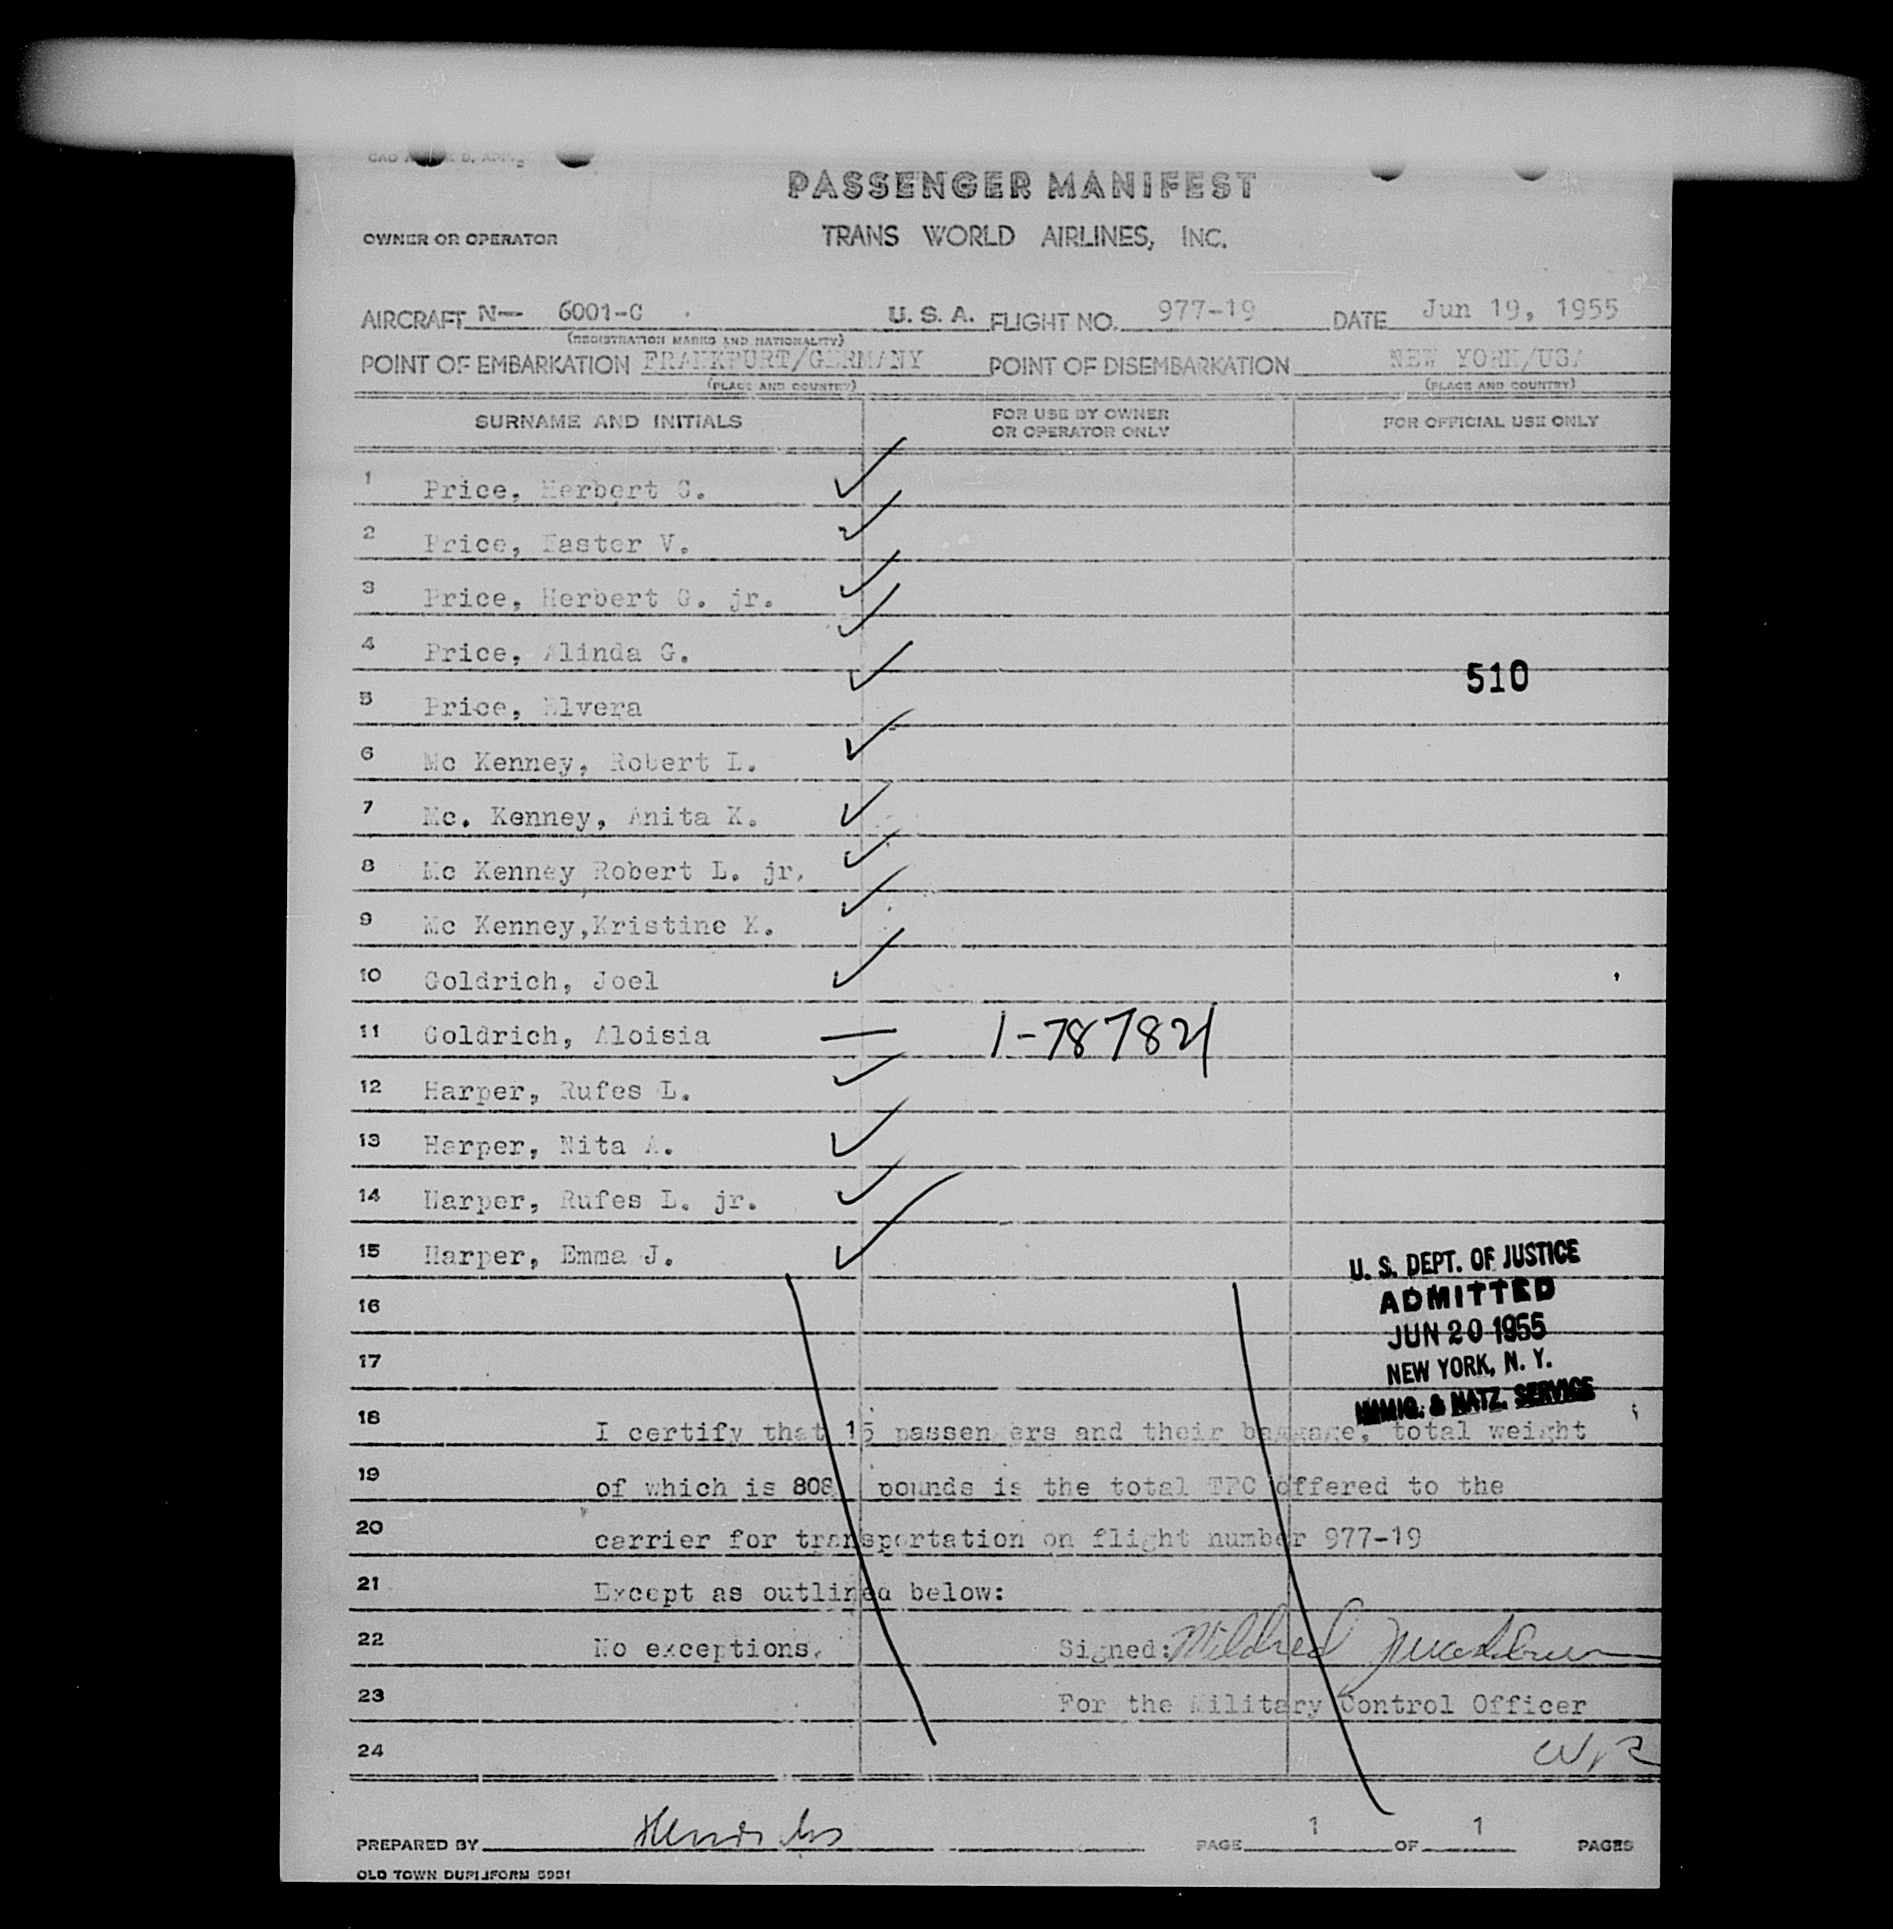 PASSENGER MANIFEST
OWNER OR OPERATOR TRANS WORLD AIRLINES, INC.
AIRCRAFT N— 6001-C U. S. A. FLIGHT NO. 977-19 DATE Jun 19, 1955
(REGISTRATION MARKS AND NATIONALITY)
POINT OF EMBARKATION FRANKFURT/GERMANY POINT OF DISEMBARKATION NEW YORK/USA
(PLACE AND COUNTRY) (PLACE AND COUNTRY)
SURNAME AND INITIALS FOR USE BY OWNER OR OPERATOR ONLY FOR OFFICIAL USE ONLY
1 Price, Herbert G.
2 Price, Easter V.
3 Price, Herbert G. jr.
4 Price, Alinda G.
510
5 Price, Elvera
6 Mc Kenney, Robert L.
7 Mc. Kenney, Anita K.
8 Mc Kenney, Robert L. jr.
9 Mc Kenney,Kristine K.
10 Goldrich, Joel
11 Goldrich, Aloisia — 1-787821
12 Harper, Rufes L.
13 Harper, Nita A.
14 Harper, Rufes L. jr.
15 Harper, Emma J.
U. S. DEPT. OF JUSTICE
ADMITTED
16
JUN 20 1955
17
NEW YORK, N. Y.
IMMIG. & NATZ. SERVICE
18 I certify that 15 passengers and their baggage, total weight
19 of which is 808 pounds is the total TFC offered to the
20 carrier for transportation on flight number 977-19
21 Except as outlined below:
22 No exceptions. Signed: Mildred
23 For the Military Control Officer
24
PREPARED BY PAGE 1 OF 1 PAGES
OLD TOWN DUPLIFORM 5931